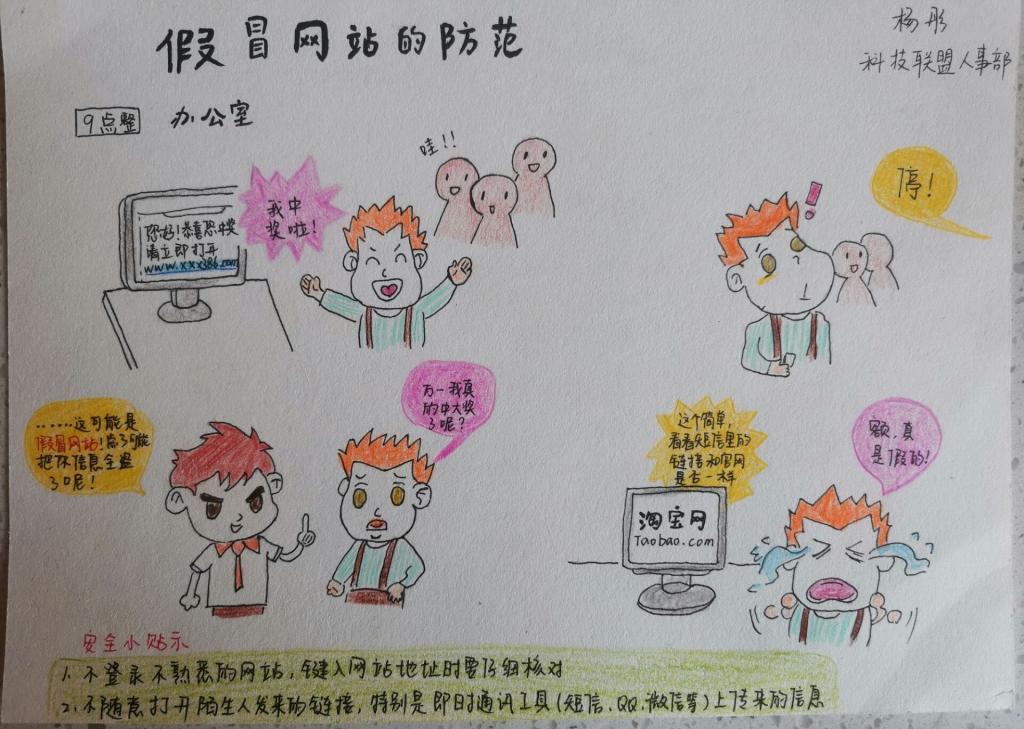 假冒网站的防范
杨彤
科技联盟人事部
9点整
办公室
您好!恭喜您中奖
请立即打开
www.xxx386.com
我中
奖啦!
哇!!
!
停!
......这可能是
假冒网站!点了可能
把你信息全盗
了呢!
万一我真
的中大奖
了呢?
这个简单,
看看短信里的
链接和官网
是否一样
淘宝网
Taobao.com
额,真
是假的!
安全小贴示
1.不登录不熟悉的网站,键入网站地址时要仔细核对
2.不随意打开陌生人发来的链接,特别是即时通讯工具(短信、QQ、微信等)上传来的信息